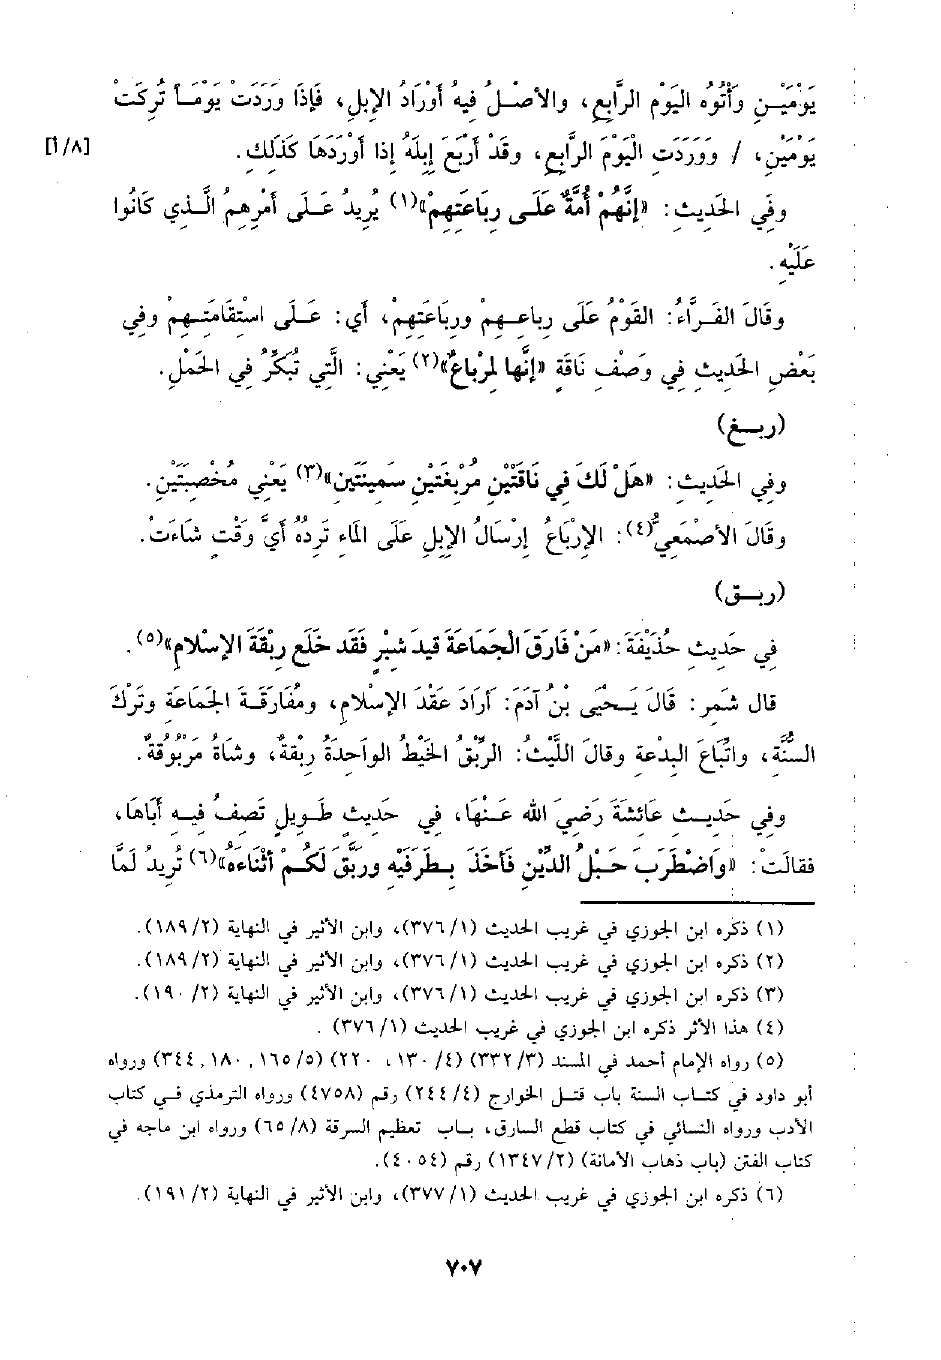 يَوْمَيْنِ وَأْتُوه اليَوْم الرَّابِع، والأصْلُ فِيهُ أَوْرَادُ الإِبِلِ، فَإِذَا وَرَدَتْ يَوْمَاً تُرِكَتْ
يَوْمَيْنِ، / وَوَرَدَتِ الْيَوْمَ الرَّابِعِ، وقَدْ أَرْبَعَ إِبِلَهُ إذا أَوْرَدَهَا كَذَلِكِ. [٨/أ]
وفَي الحَدِيثِ: «إنَّهُمْ أُمَّةٌ عَلَى رِبَاعَتِهِمْ»(١) يُرِيدُ عَلَى أَمْرِهِمُ الَّذِي كَانُوا
عَلَيْهِ.
وقَالَ الفَرَّاءُ: القَوْمُ عَلَى رِباعِهِمْ ورِبَاعَتِهِمْ، أي: عَلَى اسْتِقَامَتِهِمْ وفِي
بَعْضِ الحَدِيثِ فِي وَصْفِ نَاقَةٍ «إنَّها لَمِرْباعٌ»(٢) يَعْنِي: الَّتِي تُبَكِّرُ فِي الحَمْلِ.
(ربغ)
وفِي الحَدِيثِ: «هَلْ لَكَ فِي نَاقَتَيْنِ مُرْبَغَتَيْنِ سَمِينَتَينِ»(٣) يَعْنِي مُخْصِبَتَيْنِ.
وقَالَ الأَصْمَعِيُّ(٤): الإرْبَاغُ إِرْسَالُ الإِبِلِ عَلَى الْمَاءِ تَرِدُهُ أَيَّ وَقْتٍ شَاءَتْ.
(ربق)
فِي حَدِيثِ حُذَيْفَةَ: «مَنْ فَارَقَ الجَمَاعَةَ قِيدَ شِبْرٍ فَقَد خَلَع رِبْقَةَ الإِسْلامِ»(٥).
قال شَمَر: قَالَ يَحْيَى بْنُ آدَمَ: أرَادَ عَقْدَ الإسْلامِ، ومُفَارَقَةَ الجَمَاعَةِ وتَرْكَ
السُّنَّةِ، واتِّبَاعَ البِدْعةِ وقَالَ اللَّيْثُ: الرِّبْقُ الخَيْطُ الواحِدَةُ رِبْقَةٌ، وشَاةٌ مَرْبُوقَةٌ.
وفِي حَدِيثِ عَائِشَةَ رَضِيَ الله عَنْهَا، فِي حَدِيثٍ طَوِيلٍ تَصِفُ فِيهِ أَبَاهَا،
فقالَتْ: «واضْطَرَبَ حَبْلُ الدِّيْنِ فَأَخَذَ بِطَرَفَيْهِ ورَبَّقَ لَكُمْ أثْنَاءَهُ»(٦) تُرِيدُ لَمَّا
(١) ذكره ابن الجوزي في غريب الحديث (٣٧٦/١)، وابن الأثير في النهاية (١٨٩/٢).
(٢) ذكره ابن الجوزي في غريب الحديث (٣٧٦/١)، وابن الأثير في النهاية (١٨٩/٢).
(٣) ذكره ابن الجوزي في غريب الحديث (٣٧٦/١)، وابن الأثير في النهاية (١٩٠/٢).
(٤) هذا الأثر ذكره ابن الجوزي في غريب الحديث (٣٧٦/١) .
(٥) رواه الإمام أحمد في المسند (٣٣٢/٣) (١٣٠/٤، ٢٢٠) (١٦٥/٥، ١٨٠، ٣٤٤) ورواه
أبو داود في كتاب السنة باب قتل الخوارج (٢٤٤/٤) رقم (٤٧٥٨) ورواه الترمذي في كتاب
الأدب ورواه النسائي في كتاب قطع السارق، باب تعظيم السرقة (٦٥/٨) ورواه ابن ماجه في
كتاب الفتن (باب ذهاب الأمانة) (١٣٤٧/٢) رقم (٤٠٥٤).
(٦) ذكره ابن الجوزي في غريب الحديث (٣٧٧/١)، وابن الأثير في النهاية (١٩١/٢).
٧٠٧